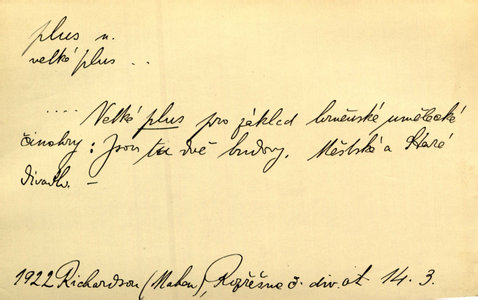 plus n.
velké plus . .
.... Velké plus pro základ brněnské umělecké
činohry: Jsou tu dvě budovy, Městské a Staré
divadlo. –
1922 Richardson (Mahen), Rozřešne č. div. ot. 14. 3.